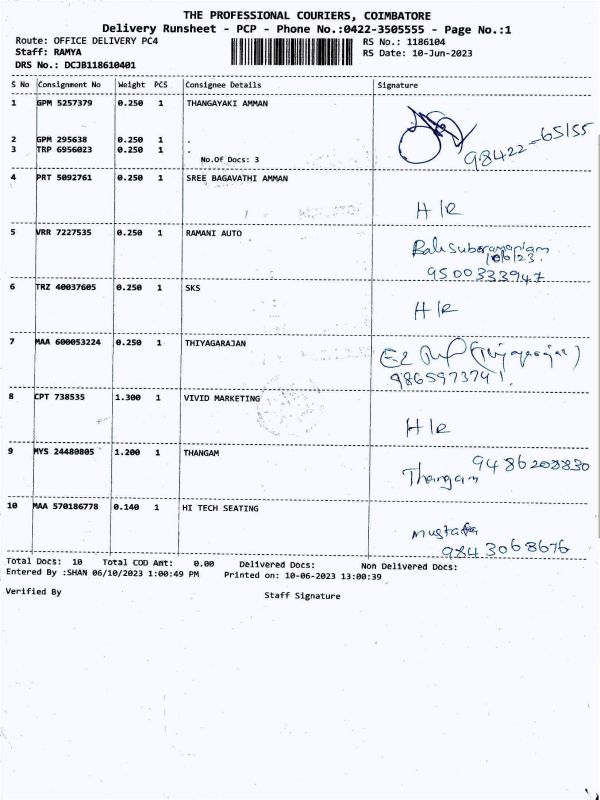 THE PROFESSIONAL COURIERS, COIMBATORE
Delivery Runsheet - PCP - Phone No.:0422-3505555 - Page No.:1
Route: OFFICE DELIVERY PC4 RS No.: 1186104
Staff: RAMYA RS Date: 10-Jun-2023
DRS No.: DCJB118610401
S No Consignment No Weight PCS Consignee Details Signature
1 GPM 5257379 0.250 1 THANGAYAKI AMMAN
2 GPM 295638 0.250 1
3 TRP 6956023 0.250 1 98422-65155
No.Of Docs: 3
4 PRT 5092761 0.250 1 SREE BAGAVATHI AMMAN
H/R
5 VRR 7227535 0.250 1 RAMANI AUTO
Balasubramaniam
10/6/23.
9500333947
6 TRZ 40037605 0.250 1 SKS
H/R
7 MAA 600053224 0.250 1 THIYAGARAJAN
9865973741.
8 CPT 738535 1.300 1 VIVID MARKETING
H/R
9 MYS 24480805 1.200 1 THANGAM
9486208830
Thangam
10 MAA 570186778 0.140 1 HI TECH SEATING
Mustafa
9843068676
Total Docs: 10 Total COD Amt: 0.00 Delivered Docs: Non Delivered Docs:
Entered By :SHAN 06/10/2023 1:00:49 PM Printed on: 10-06-2023 13:00:39
Verified By Staff Signature